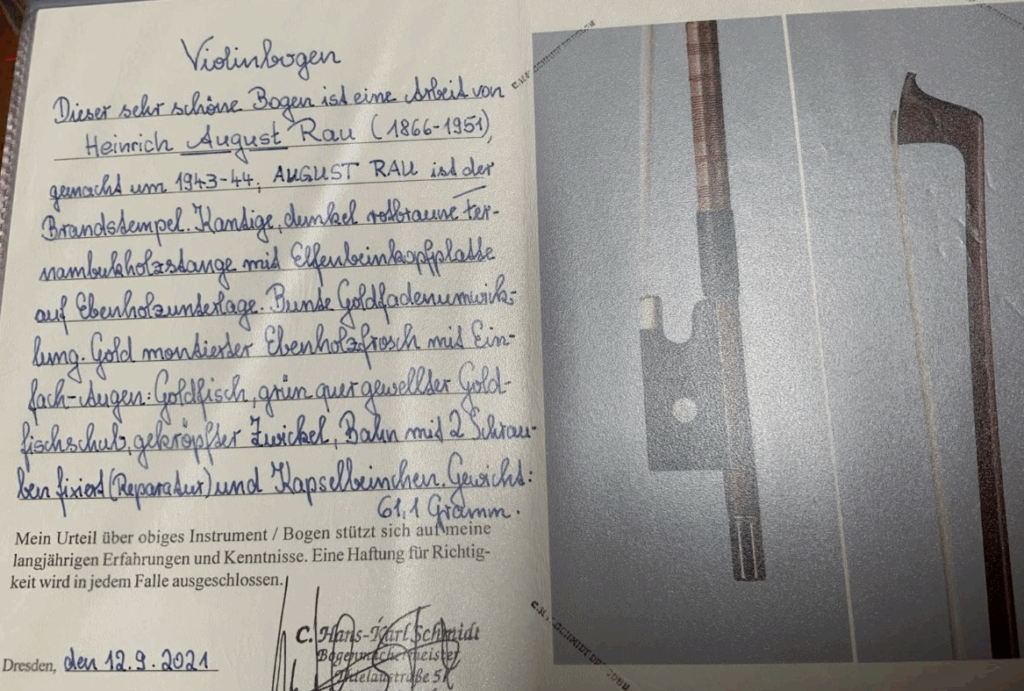 Violinbogen
Dieser sehr schöne Bogen ist eine Arbeit von
Heinrich August Rau (1866-1951),
gemacht um 1943-44; AUGUST RAU ist der
Brandstempel. Kantige, dunkel rotbraune Fer-
nambukholzstange mit Elfenbeinkopfplatte
auf Ebenholzunterlage. Bunte Goldfadenumwick-
lung. Gold montierter Ebenholzfrosch mit Ein-
fach-Augen: Goldfisch, grün quer gewellter Gold-
fischschub, gekröpfter Zwickel, Bahn mit 2 Schrau-
ben fixiert (Reparatur) und Kapselbeinchen. Gewicht:
61,1 Gramm.
Mein Urteil über obiges Instrument / Bogen stützt sich auf meine
langjährigen Erfahrungen und Kenntnisse. Eine Haftung für Richtig-
keit wird in jedem Falle ausgeschlossen.
C. Hans-Karl Schmidt
Bogenmachermeister
Dresden, den 12.9.2021